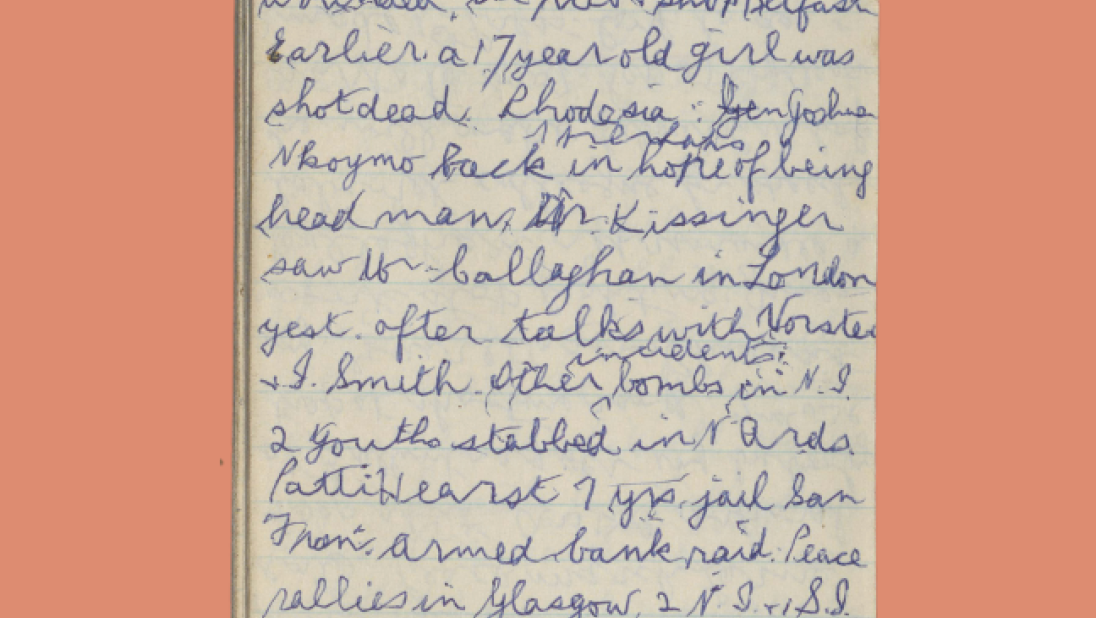 Belfast
Earlier a 17 year old girl was
shot dead. Rhodesia : Gen Joshua
Nkoymo back in hope of being
head man. Dr. Kissinger
saw Mr Callaghan in London
yest. after talks with Vorster
incidents:
+ I. Smith. Other bombs in N.I.
2 Youths stabbed in N Ards.
Patti Hearst 7 yrs. jail San
Fran. armed bank raid. Peace
rallies in Glasgow, 2 N.I. + S.I.